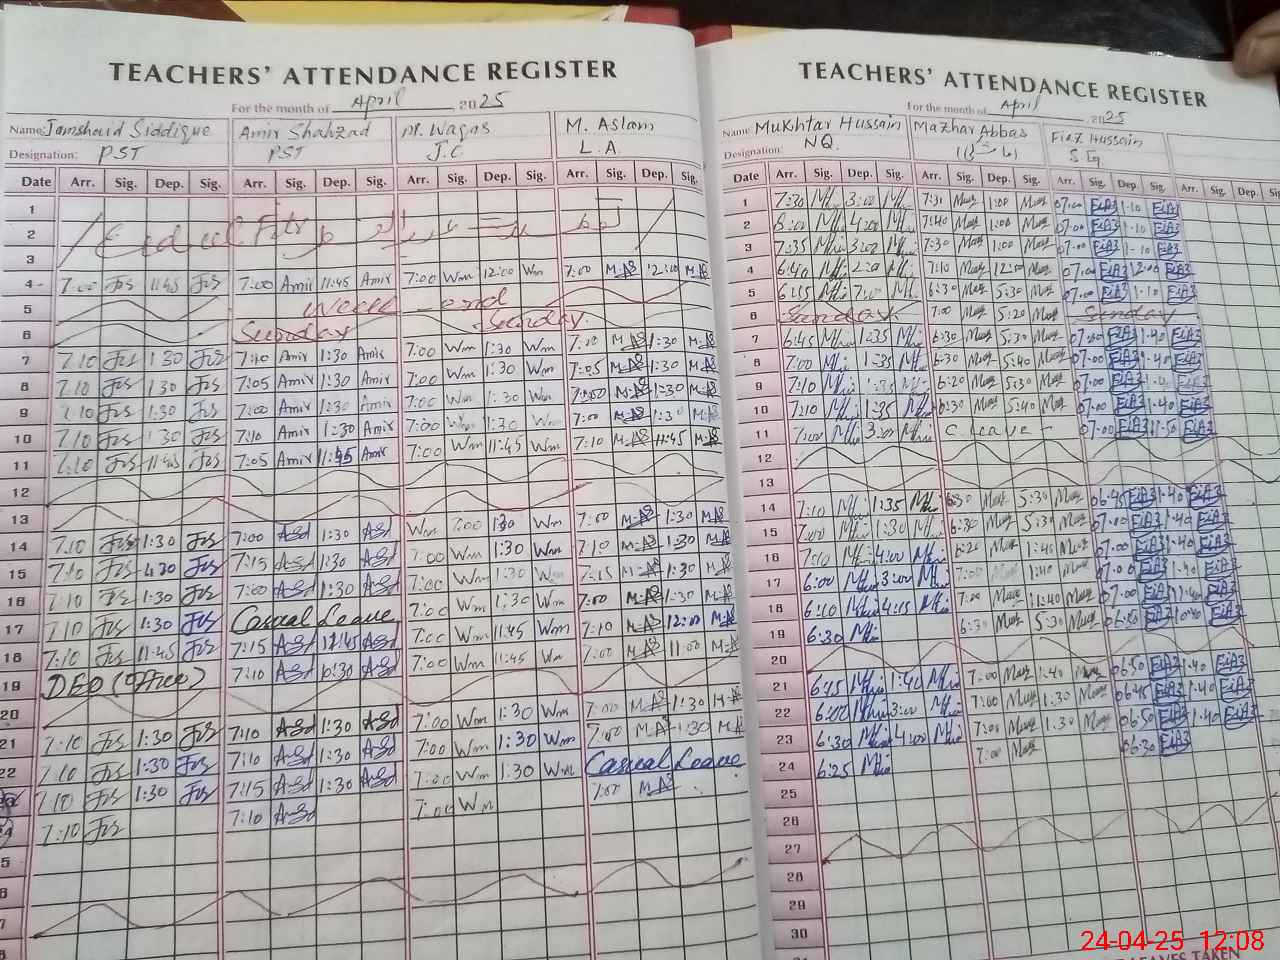 TEACHERS' ATTENDANCE REGISTER
For the month of April 2025
Name: Jamshaid Siddique Amir Shahzad M. Waqas M. Aslam
Designation: PST PST J.C. L.A.
Date Arr. Sig. Dep. Sig. Arr. Sig. Dep. Sig. Arr. Sig. Dep. Sig. Arr. Sig. Dep. Sig.
1
2 Eid ul Fitr
3
4 7:00 Jss 11:45 Jss 7:00 Amir 11:45 Amir 7:00 Wm 12:00 Wm 7:00 M.AS 12:00 M.AS
5 Week end
6 Sunday Sunday
7 7:10 Jss 1:30 Jss 7:10 Amir 1:30 Amir 7:00 Wm 1:30 Wm 7:10 M.AS 1:30 M.AS
8 7:10 Jss 1:30 Jss 7:05 Amir 1:30 Amir 7:00 Wm 1:30 Wm 7:05 M.AS 1:30 M.AS
9 7:10 Jss 1:30 Jss 7:00 Amir 1:30 Amir 7:00 Wm 1:30 Wm 7:00 M.AS 1:30 M.AS
10 7:10 Jss 1:30 Jss 7:10 Amir 1:30 Amir 7:00 Wm 1:30 Wm 7:00 M.AS 1:30 M.AS
11 7:10 Jss 11:45 Jss 7:05 Amir 11:45 Amir 7:00 Wm 11:45 Wm 7:10 M.AS 11:45 M.AS
12
13
14 7:10 Jss 1:30 Jss 7:00 ASd 1:30 ASd Wm 7:00 1:30 Wm 7:00 M.AS 1:30 M.AS
15 7:10 Jss 4:30 Jss 7:15 ASd 1:30 ASd 7:00 Wm 1:30 Wm 7:10 M.AS 1:30 M.AS
16 7:10 Jss 1:30 Jss 7:00 ASd 1:30 ASd 7:00 Wm 1:30 Wm 7:15 M.AS 1:30 M.AS
17 7:10 Jss 1:30 Jss Casual Leave 7:00 Wm 1:30 Wm 7:00 M.AS 1:30 M.AS
18 7:10 Jss 11:45 Jss 7:15 ASd 12:45 ASd 7:00 Wm 11:45 Wm 7:10 M.AS 12:00 M.AS
19 DEO (Office) 7:10 ASd ASd 7:00 Wm 11:45 Wm 7:00 M.AS 11:00 M.AS
20
21 7:10 Jss 1:30 Jss 7:10 ASd 1:30 ASd 7:00 Wm 1:30 Wm 7:00 M.AS 1:30 M.AS
22 7:10 Jss 1:30 Jss 7:10 ASd 1:30 ASd 7:00 Wm 1:30 Wm 7:00 M.AS 1:30 M.AS
23 7:10 Jss 1:30 Jss 7:15 ASd 1:30 ASd 7:00 Wm 1:30 Wm Casual Leave
24 7:10 Jss 7:10 ASd 7:00 Wm 7:00 M.AS
5
6
7
8
TEACHERS' ATTENDANCE REGISTER
For the month of April 2025
Name: Mukhtar Hussain Mazhar Abbas Fiaz Hussain
Designation: NQ. S G
Date Arr. Sig. Dep. Sig. Arr. Sig. Dep. Sig. Arr. Sig. Dep. Sig. Arr. Sig. Dep. Sig
1 7:30 3:00 7:30 Maz 1:00 Maz 07:00 1:10
2 8:00 4:00 7:40 Maz 1:00 Maz 07:00 1:10
3 7:35 3:00 7:30 Maz 1:00 Maz 07:00 1:10
4 6:40 2:00 7:10 Maz 12:00 Maz 07:00 12:00
5 6:45 7:00 6:30 Maz 5:30 Maz 07:00 1:10
6 Sunday 7:00 Maz 5:20 Maz Sunday
7 6:45 1:35 6:30 Maz 5:30 Maz 07:00 1:40
8 7:00 1:35 6:30 Maz 5:40 Maz 07:00 1:40
9 7:10 1:35 6:20 Maz 5:30 Maz 07:00 1:40
10 7:10 1:35 6:30 Maz 5:40 Maz 07:00 1:40
11 7:00 3:00 C. leave 07:00 11:50
12
13
14 7:10 1:35 6:30 Maz 5:30 Maz 06:45 1:40
15 7:00 1:30 6:30 Maz 5:30 Maz 07:00 1:40
16 7:10 4:00 6:20 Maz 1:40 Maz 07:00 1:40
17 6:00 3:00 7:00 1:40 Maz 07:00 1:40
18 6:10 4:15 7:00 Maz 11:40 Maz 07:00 11:40
19 6:30 6:30 Maz 5:30 Maz
20
21 6:45 1:40 7:00 Maz 1:40 Maz 06:50 1:40
22 6:00 3:00 7:00 Maz 1:30 Maz 06:45 1:40
23 6:30 4:00 7:00 Maz 1:30 Maz 06:50 1:40
24 6:25 7:00 Maz 06:30
25
26
27
28
29
30
LEAVES TAKEN
24-04-25 12:08